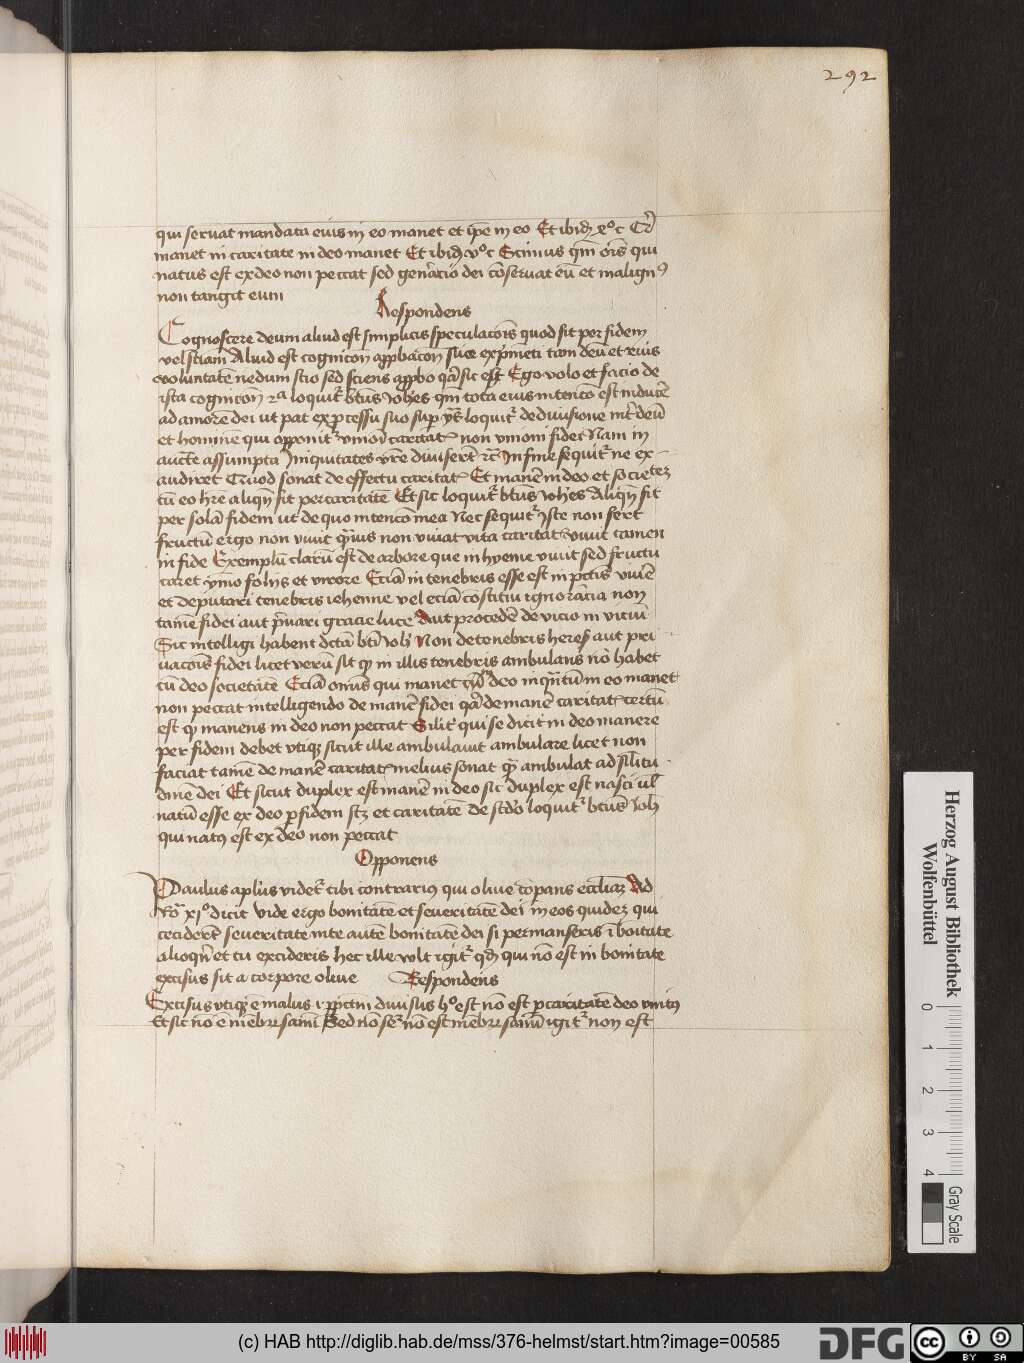 292
qui seruat mandata eius in eo manet et ip̄e in eo Et ibid̄ 
manet in caritate in deo manet Et ibid̄ vᵒ c Scimus qm̄ om̄s qui
natus est ex deo non peccat sed gen̄acio dei cōseruat eū et malignꝰ
non tangit eum
Respondens
Cognoscere deum aliud est simplicis speculacōis quod sit per fidem
vel sciam̄ Aliud est cognicōn app̄bacōn siue exp̄imeti tam deū et eius
voluntatē nedum scio sed sciens app̄bo q̄a sic est Ego volo et facio de
ista cognicōn 2ᵃ loquitʳ btūs Joh̄es qm̄ tota eius intencō est inducē
ad amorē dei ut pat ex p̄cessu suo sup̄ loquitʳ de diuisione int̄ deū
et hominē qui opponitʳ vnioī caritatꝭ non vnioni fidei Nam in
auctē assumpta Iniquitates vr̄e diuiserūt 
audiret Quod sonat de effectu caritatꝭ Et manē in deo et societez
tū eo hr̄e aliqn̄ fit per caritatē Et sic loquitʳ btūs Joh̄es Aliqn̄ fit
per solā fidem ut de quo intencō mea Nec sequitʳ Iste non fert
fructū ergo non viuit q̄uis non viuat vita caritatꝭ viuit tamen
in fide Exemplū clarū est de arbore que in hyeme viuit sed fructu
caret ymo folijs et virore Eciā in tenebris esse est in pctīs viuē
et deputari tenebris iehenne vel eciā cōstitui ignorācia non
tamē fidei aut p̄uari gracie luce Aut procedē de vicio in viciū
Sic intelligi habent dcta bti Joh̄ Non de tenebris heresꝭ aut pri
uacōis fidei licet verū sit qꝫ in illis tenebris ambulans nō habet
cū deo societatē Eciā om̄is qui manet deo inqn̄tū in eo manet
non peccat intelligendo de manē fidei q̄a de manē caritatꝭ certū
est qꝫ manens in deo non peccat Silitʳ qui se dicit in deo manere
per fidem debet vtiqꝫ sicut ille ambulauit ambulare licet non
faciat tamē de manē caritatꝭ melius sonat qꝫ ambulat ad silitu
dinē dei Et sicut duplex est manē in deo sic duplex est nasci ul̄
natū esse ex deo p̄ fidem sꝫ et caritatē De scd̄o loquitʳ btūs Joh̄
qui natꝰ est ex deo non peccat
Opponens
Paulus apl̄us videtʳ tibi contrariꝰ qui oliue cōparans eccliaꝫ Ad
Roᵃ xjᵒ dicit Vide ergo bonitatē et seueritatē dei in eos quideꝫ qui
ceciderūt seueritatē in te autē bonitatē dei si permanseris ī boītate
alioqn̄ et tu excideris hec ille vult igitʳ qd̄ qui nō est in bonitate
excisus sit a corpore oliue Respondens
Excisus vtiqꝫ e malus diuisus hᵒ est nō est p̄ caritatē deo vnitꝰ
Et sic nō e mēbrꝝ sanū Sed nō seʳ nō est mēbrꝝ sanū igitʳ non est
Herzog August Bibliothek
Wolfenbüttel
0 1 2 3 4
Gray Scale
(c) HAB http://diglib.hab.de/mss/376-helmst/start.htm?image=00585
DFG
cc BY SA